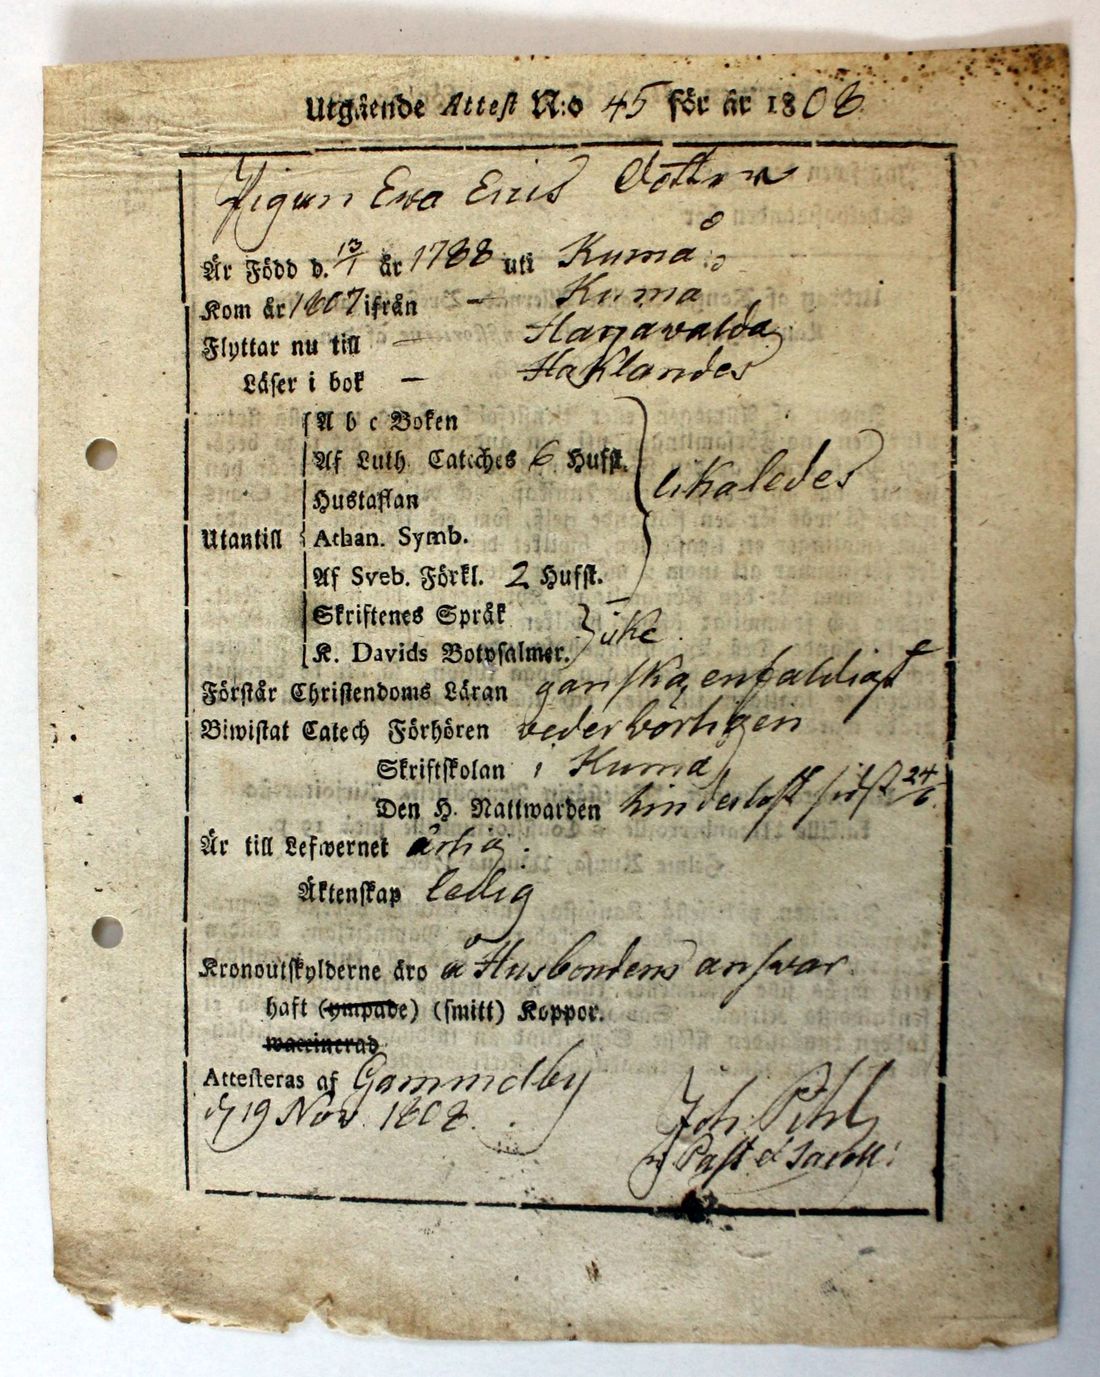 Utgående Attest N:o 45 för år 1808
Pigan Ewa Ericsdotter
Är Född d. 13/1 år 1788 uti Kumla
Kom år 1807 ifrån — Kumla
Flyttar nu till — Harjawalda
Läser i bok — Haklandes
A b c Boken
Af Luth. Cateches 6 Hufst.
Hustaflan
likaledes
Utantill
Athan. Symb.
Af Sveb. Förkl. 2 Hufst.
Skriftenes Språk
icke
K. Davids Botpsalmer.
Förstår Christendoms Läran ganska enfaldigt
Biwistat Catech Förhören vederbörligen
Skriftskolan i Kumla
Den H. Nattwarden hinderlöst sidst 24/6
Är till Lefwernet ärlig.
Äktenskap ledig
Kronoutskylderne äro å Husbondens answar.
haft (ympade) (smitt) Koppor.
waccinerad
Attesteras af Gammelby
d. 19 Nov. 1808.
Joh. Pihl
Past.